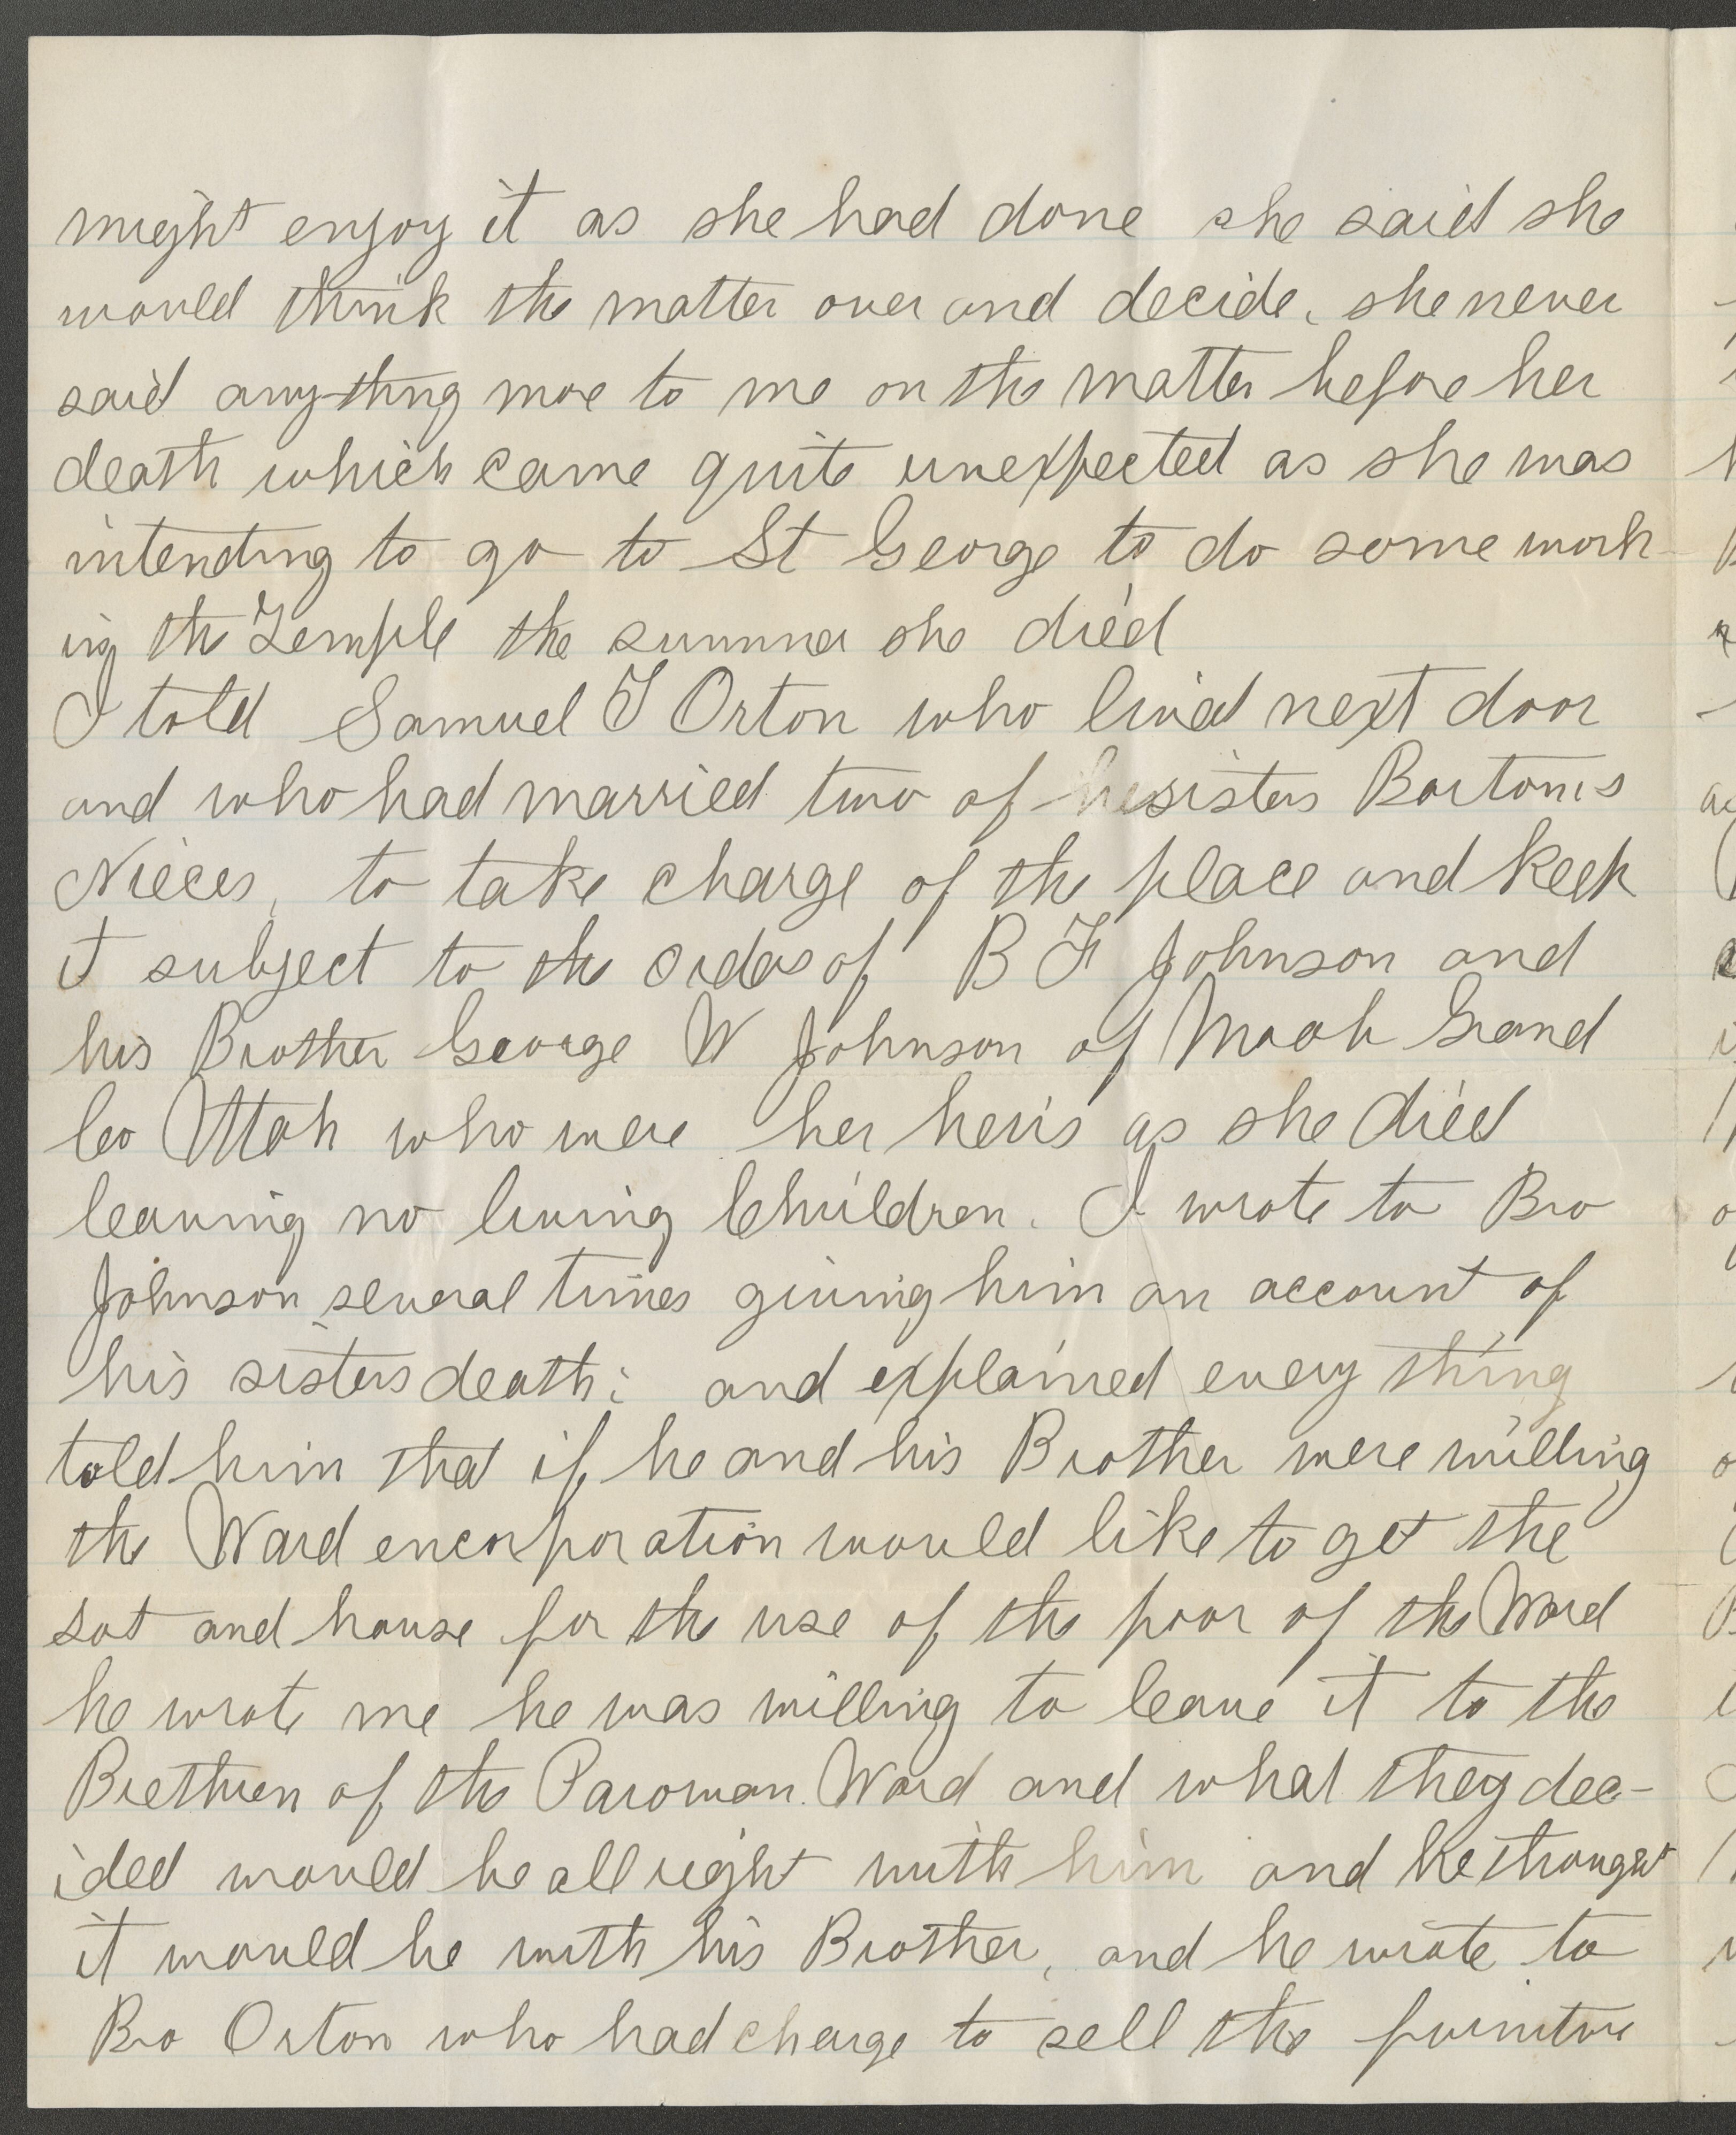 might enjoy it as she had done she said she
would think the matter over and decide. she never
said any-thing more to me on the matter before her
death which came quite unexpected as she was
intending to go to St George to do some work
in the Temple the summer she died
I told Samuel T Orton who lived next door
and who had married two of sisters Bartons
Nieces, to take charge of the place and keep
it subject to the orders of B F Johnson and
his Brother George W Johnson of Moab Grand
Co Utah who were her heirs as she died
leaving no living Children. I wrote to Bro
Johnson several times giving him an account of
his sisters death; and explained every thing
told him that if he and his Brother were willing
the Ward encorporation would like to get the
Lot and house for the use of the poor of the Ward
he wrote me he was willing to leave it to the
Brethren of the Parowan Ward and what they dec-
ided would be all right with him and he thought
it would be with his Brother, and he wrote to
Bro Orton who had charge to sell the furniture